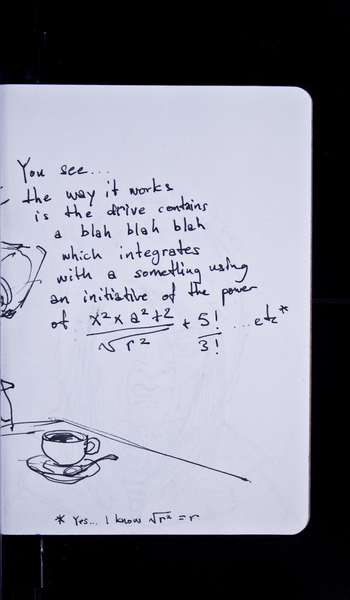 You see...
the way it works
is the drive contains
a blah blah blah
which integrates
with a something using
an initiative of the power
of x² x a² + 2 / √r² + 5! / 3! ... etc*
* Yes... I know √r² = r